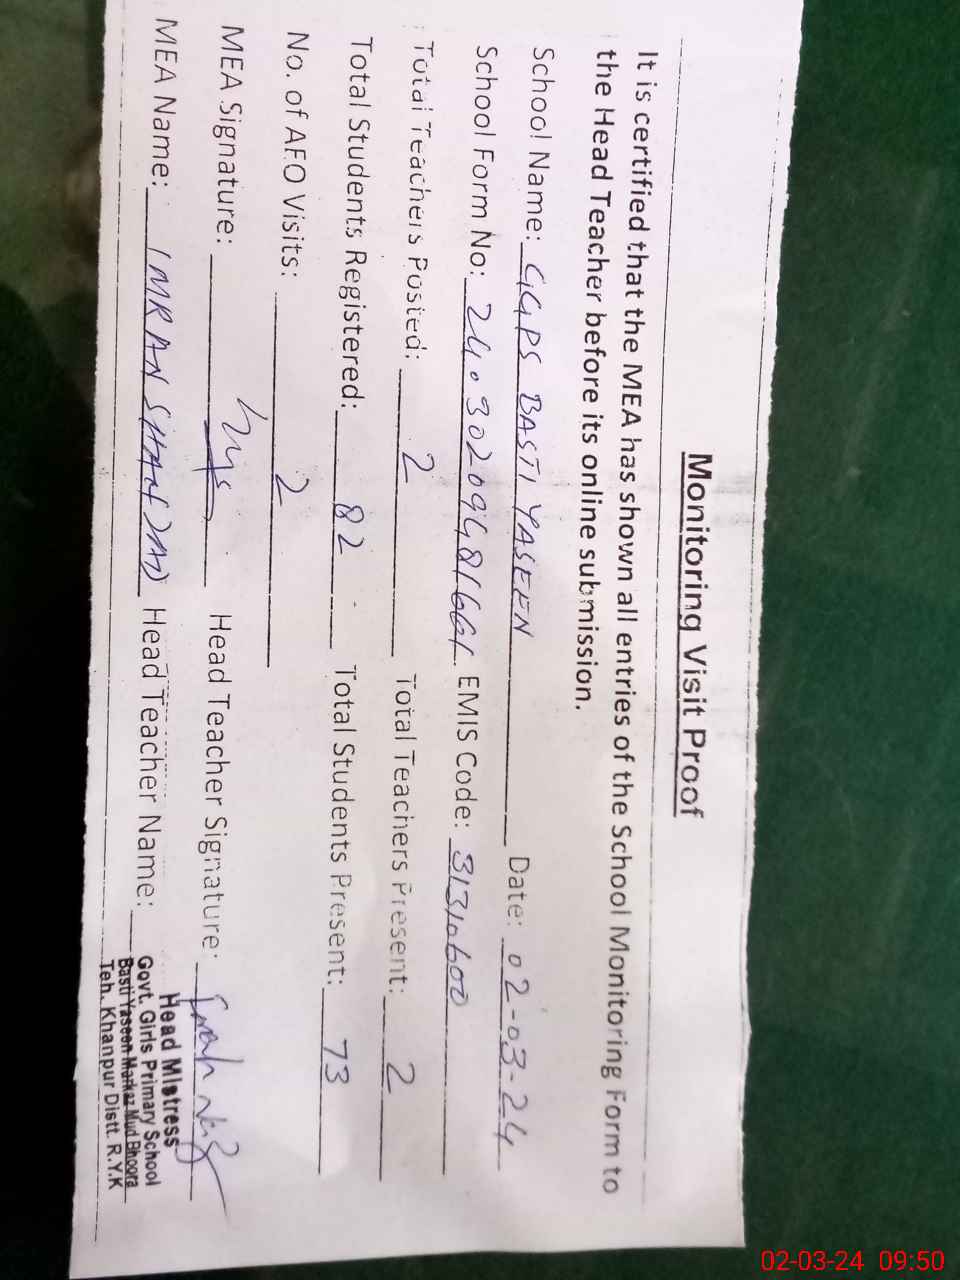 Monitoring Visit Proof
It is certified that the MEA has shown all entries of the School Monitoring Form to
the Head Teacher before its online submission.
School Name: GGPS BASTI YASEEN Date: 02-03-24
School Form No: EMIS Code: 31310600
Total Teachers Posted: 2 Total Teachers Present: 2
Total Students Registered: 82 Total Students Present: 73
No. of AEO Visits: 2
MEA Signature: Head Teacher Signature:
MEA Name: IMRAN Head Teacher Name:
Head Mistress
Govt. Girls Primary School
Basti Yaseen Markaz Mud Bhoora
Teh. Khanpur Distt. R.Y.K
02-03-24 09:50